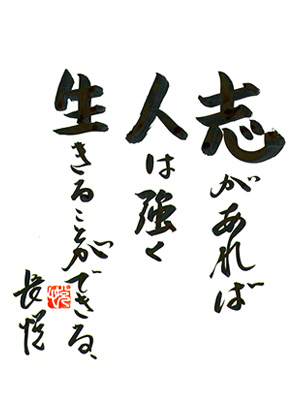 志があれば
人は強く
生きることができる、
長悦